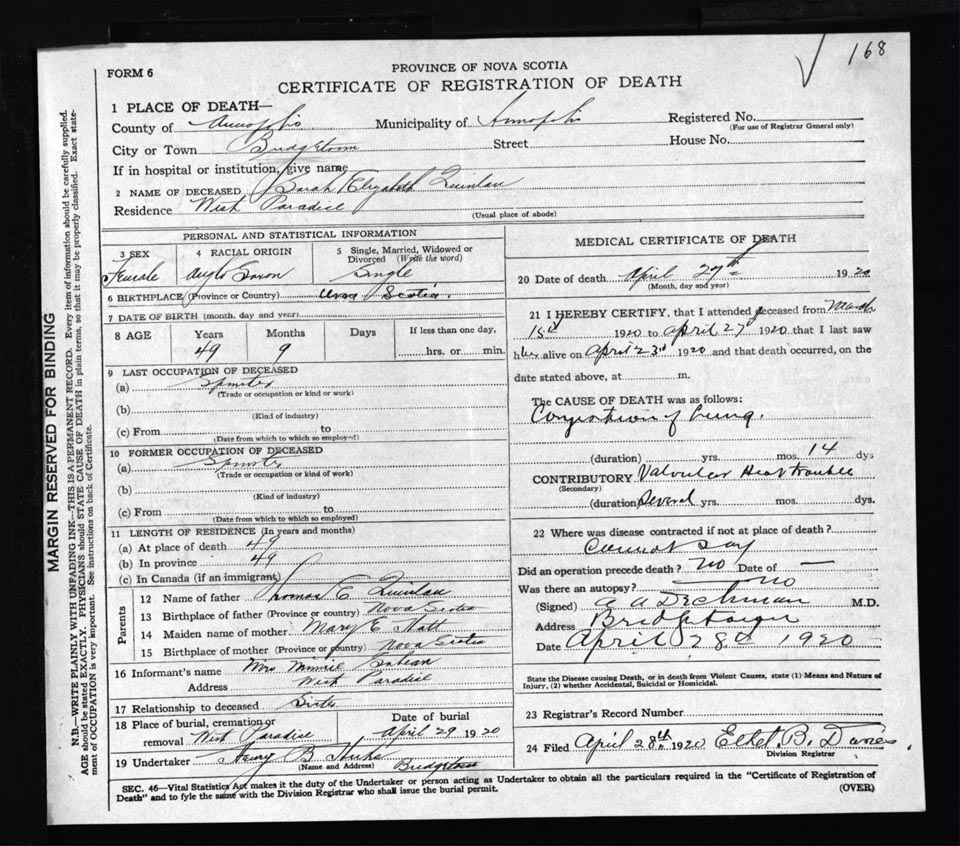 168
FORM 6
PROVINCE OF NOVA SCOTIA
CERTIFICATE OF REGISTRATION OF DEATH
1 PLACE OF DEATH—
County of Annapolis Municipality of Annapolis Registered No.
(For use of Registrar General only)
City or Town Bridgetown Street House No.
If in hospital or institution, give name
2 NAME OF DECEASED Sarah Elizabeth Quinlan
Residence West Paradise
(Usual place of abode)
PERSONAL AND STATISTICAL INFORMATION
3 SEX 4 RACIAL ORIGIN 5 Single, Married, Widowed or Divorced (Write the word)
Female Anglo Saxon Single
6 BIRTHPLACE (Province or Country) Nova Scotia.
7 DATE OF BIRTH (month, day and year)
8 AGE Years Months Days If less than one day,
49 9 hrs. or min.
9 LAST OCCUPATION OF DECEASED
(a) Spinster
(Trade or occupation or kind or work)
(b)
(Kind of industry)
(c) From to
(Date from which to which so employed)
10 FORMER OCCUPATION OF DECEASED
(a) Spinster
(Trade or occupation or kind of work)
(b)
(Kind of industry)
(c) From to
(Date from which to which so employed)
11 LENGTH OF RESIDENCE (In years and months)
(a) At place of death 49
(b) In province 49
(c) In Canada (if an immigrant)
Parents
12 Name of father Thomas C Quinlan
13 Birthplace of father (Province or country) Nova Scotia
14 Maiden name of mother Mary E
15 Birthplace of mother (Province or country) Nova Scotia
16 Informant's name Mrs Minnie
Address West Paradise
17 Relationship to deceased Sister
18 Place of burial, cremation or removal West Paradise
Date of burial April 29 1920
19 Undertaker Henry B Hicks Bridgetown
(Name and Address)
MEDICAL CERTIFICATE OF DEATH
20 Date of death April 27th 1920
(Month, day and year)
21 I HEREBY CERTIFY, that I attended deceased from March
15th 1920 to April 27 1920 that I last saw
her alive on April 23rd 1920 and that death occurred, on the
date stated above, at m.
The CAUSE OF DEATH was as follows:
Congestion of Lung.
(duration) yrs. mos. 14 dys
CONTRIBUTORY Valvular Heart trouble
(Secondary)
(duration) Several yrs. mos. dys.
22 Where was disease contracted if not at place of death?
Cannot say
Did an operation precede death? No Date of —
Was there an autopsy? No
(Signed) A A Dechman M.D.
Address Bridgetown
Date April 28th 1920
State the Disease causing Death, or in death from Violent Causes, state (1) Means and Nature of
Injury, (2) whether Accidental, Suicidal or Homicidal.
23 Registrar's Record Number
24 Filed April 28th 1920 Ethel B. Davies.
Division Registrar
SEC. 46—Vital Statistics Act makes it the duty of the Undertaker or person acting as Undertaker to obtain all the particulars required in the "Certificate of Registration of
Death" and to fyle the same with the Division Registrar who shall issue the burial permit.
(OVER)
MARGIN RESERVED FOR BINDING
N.B.—WRITE PLAINLY WITH UNFADING INK—THIS IS A PERMANENT RECORD. Every item of information should be carefully supplied.
AGE should be stated EXACTLY. PHYSICIANS should STATE CAUSE OF DEATH in plain terms, so that it may be properly classified. Exact state-
ment of OCCUPATION is very important. See instructions on back of Certificate.